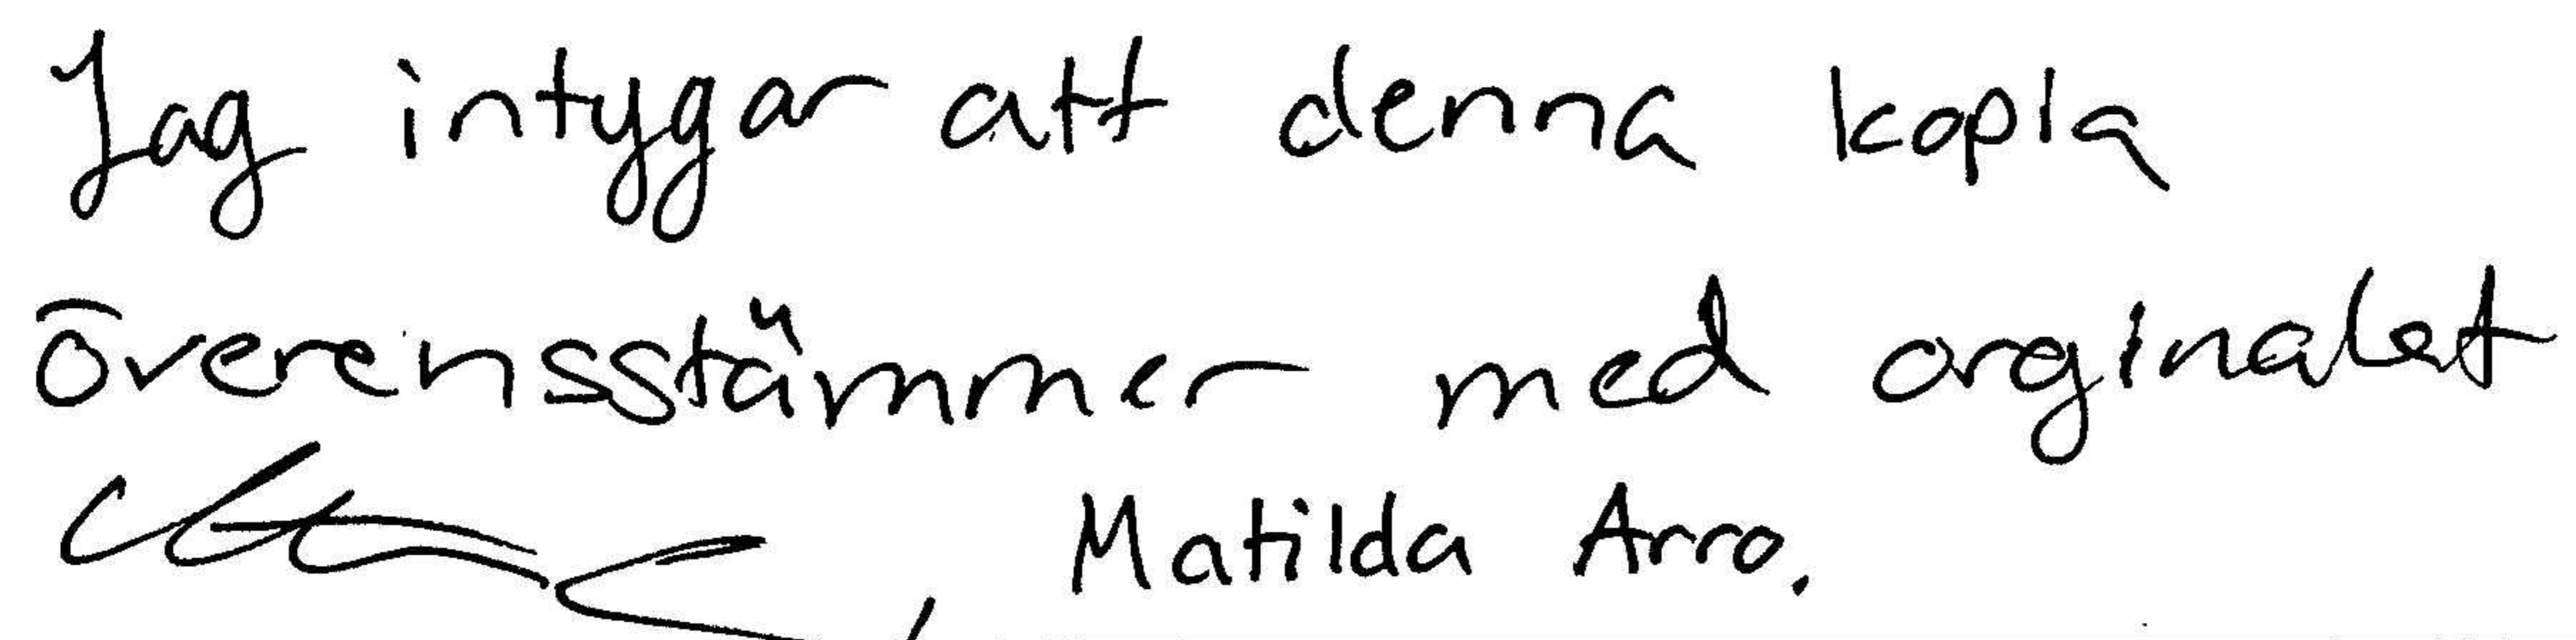 Jag intygar att denna kopia
överensstämmer med orginalet
, Matilda Arro.